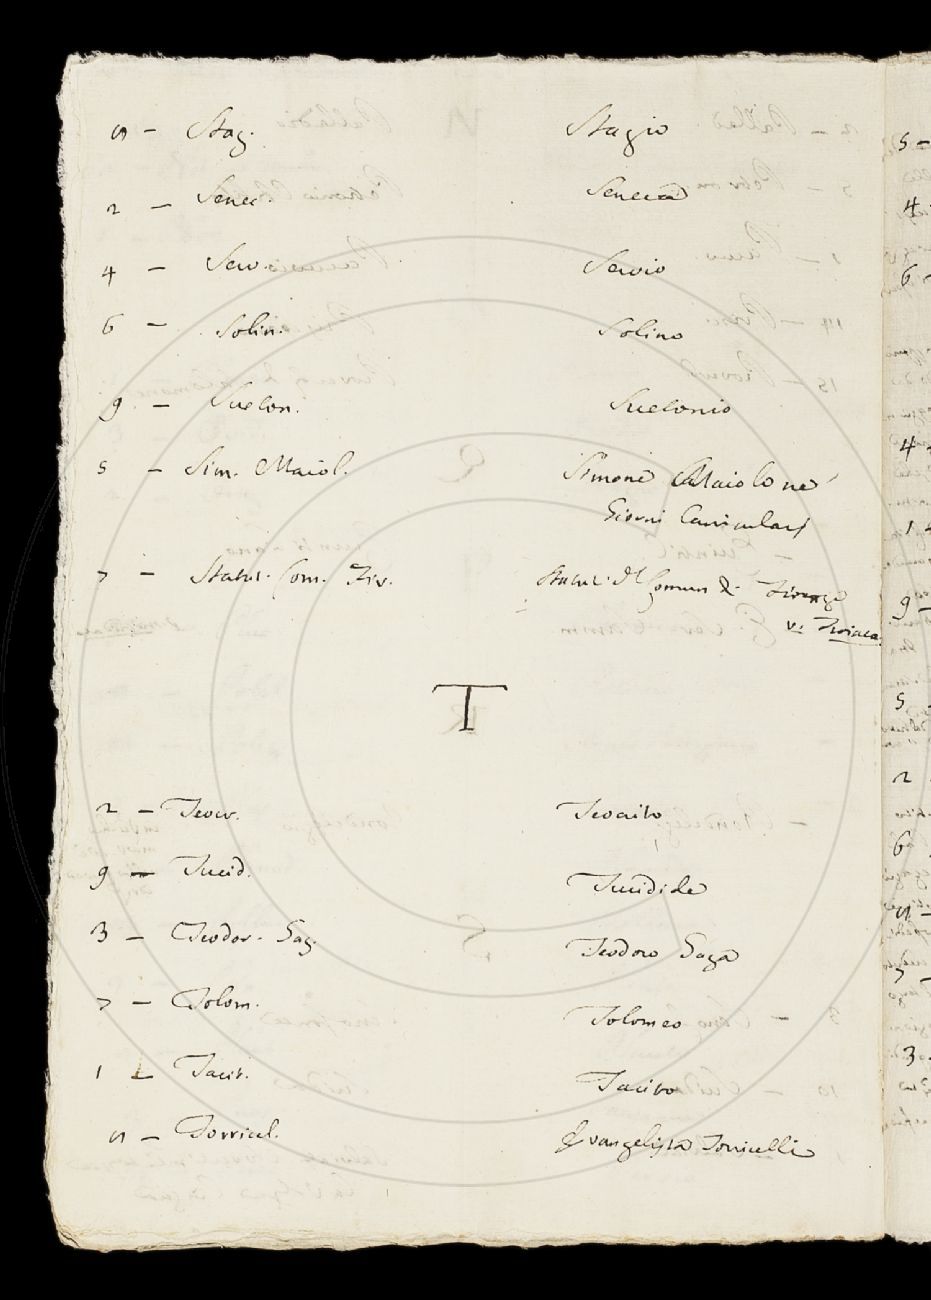 5 - Staz. Stazio
2 - Senec. Seneca
4 - Serv. Servio
6 - Solin. Solino
9 - Sueton. Suetonio
5 - Sim. Maiol. Simone Maiolo ne'
Giorni Canicularj
7 - Statut. Com. Tiv. Statut. del Comun di
v: Tivia
T
2 - Teocr. Teocrito
9 - Tucid. Tucidide
3 - Teodor. Gaz. Teodoro Gaza
7 - Tolom. Tolomeo
1 - Tacit. Tacito
5 - Torricel. Evangelista Torricelli